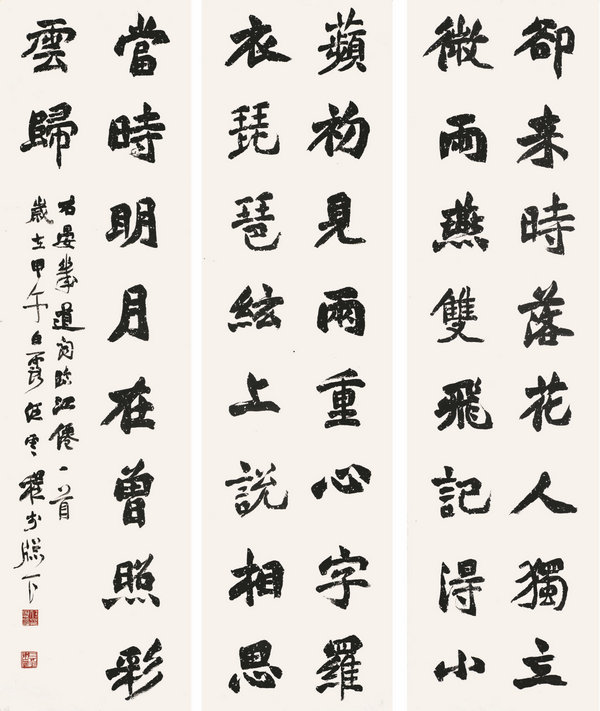 卻来時落花人獨立
微雨燕雙飛記得小
蘋初見兩重心字羅
衣琵琶絃上說相思
當時明月在曾照彩
雲歸
右晏幾道詞臨江僊一首
歲在甲午白露